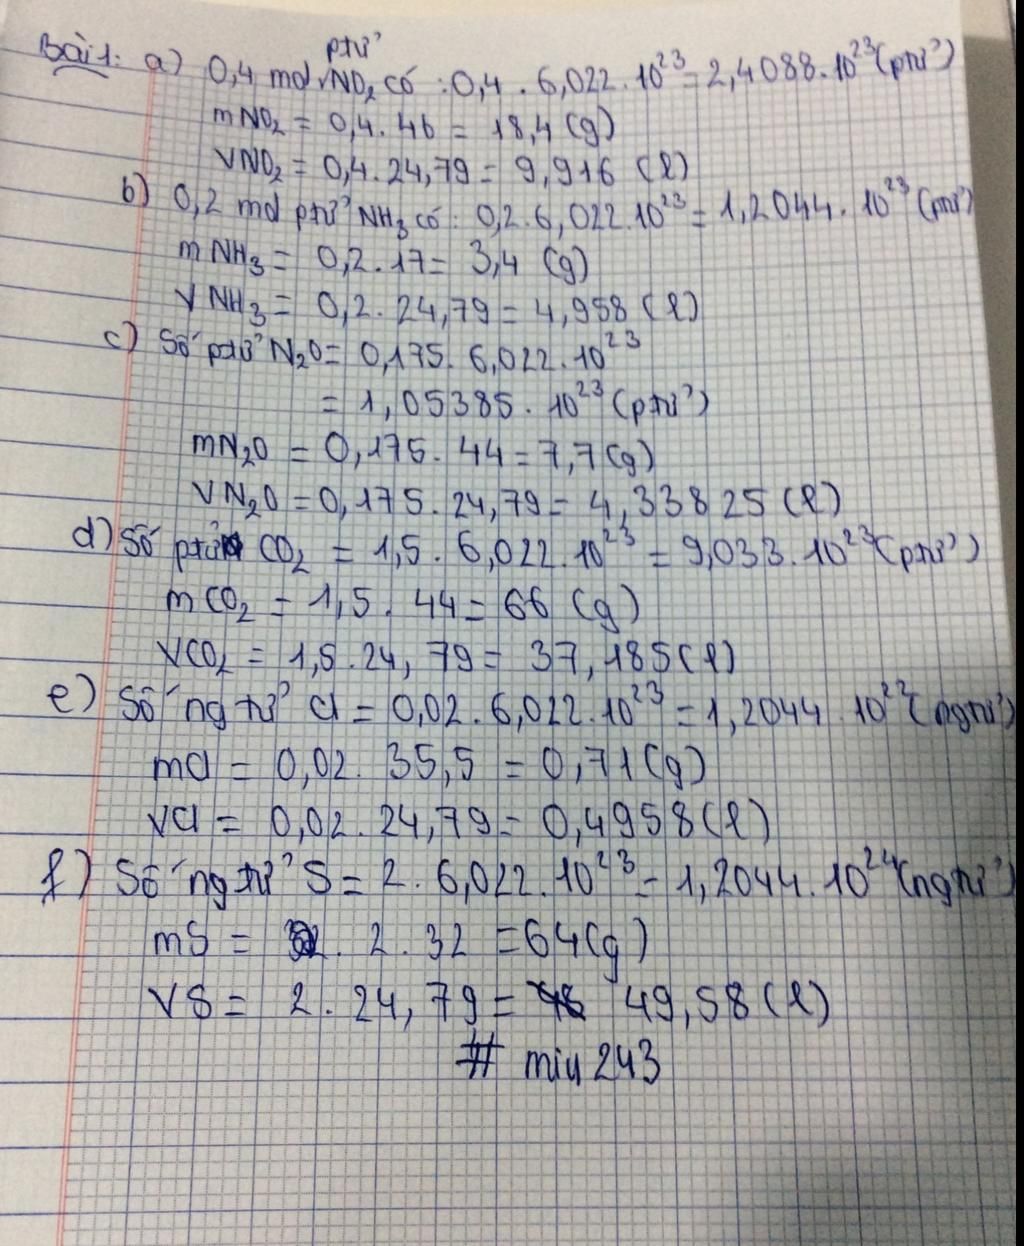 Bài 1: a) 0,4 mol ptử NO₂ có : 0,4 . 6,022.10²³ = 2,4088.10²³ (ptử)
mNO₂ = 0,4. 46 = 18,4 (g)
VNO₂ = 0,4. 24,79 = 9,916 (l)
b) 0,2 mol ptử NH₃ có: 0,2.6,022.10²³ = 1,2044.10²³ (ptử)
mNH₃ = 0,2.17 = 3,4 (g)
VNH₃ = 0,2. 24,79 = 4,958 (l)
c) Số ptử N₂O = 0,175. 6,022.10²³
= 1,05385. 10²³ (ptử)
mN₂O = 0,175. 44 = 7,7 (g)
VN₂O = 0,175.24,79 = 4,33825 (l)
d) Số ptử CO₂ = 1,5. 6,022.10²³ = 9,033.10²³ (ptử)
mCO₂ = 1,5. 44 = 66 (g)
VCO₂ = 1,5.24,79 = 37,185 (l)
e) Số ng tử Cl = 0,02.6,022.10²³ = 1,2044.10²² (ngtử)
mCl = 0,02. 35,5 = 0,71 (g)
VCl = 0,02. 24,79 = 0,4958 (l)
f) Số ng tử S = 2. 6,022.10²³ = 1,2044.10²⁴ (ngtử)
mS = 2. 32 = 64 (g)
VS = 2. 24,79 = 49,58 (l)
# miu 243